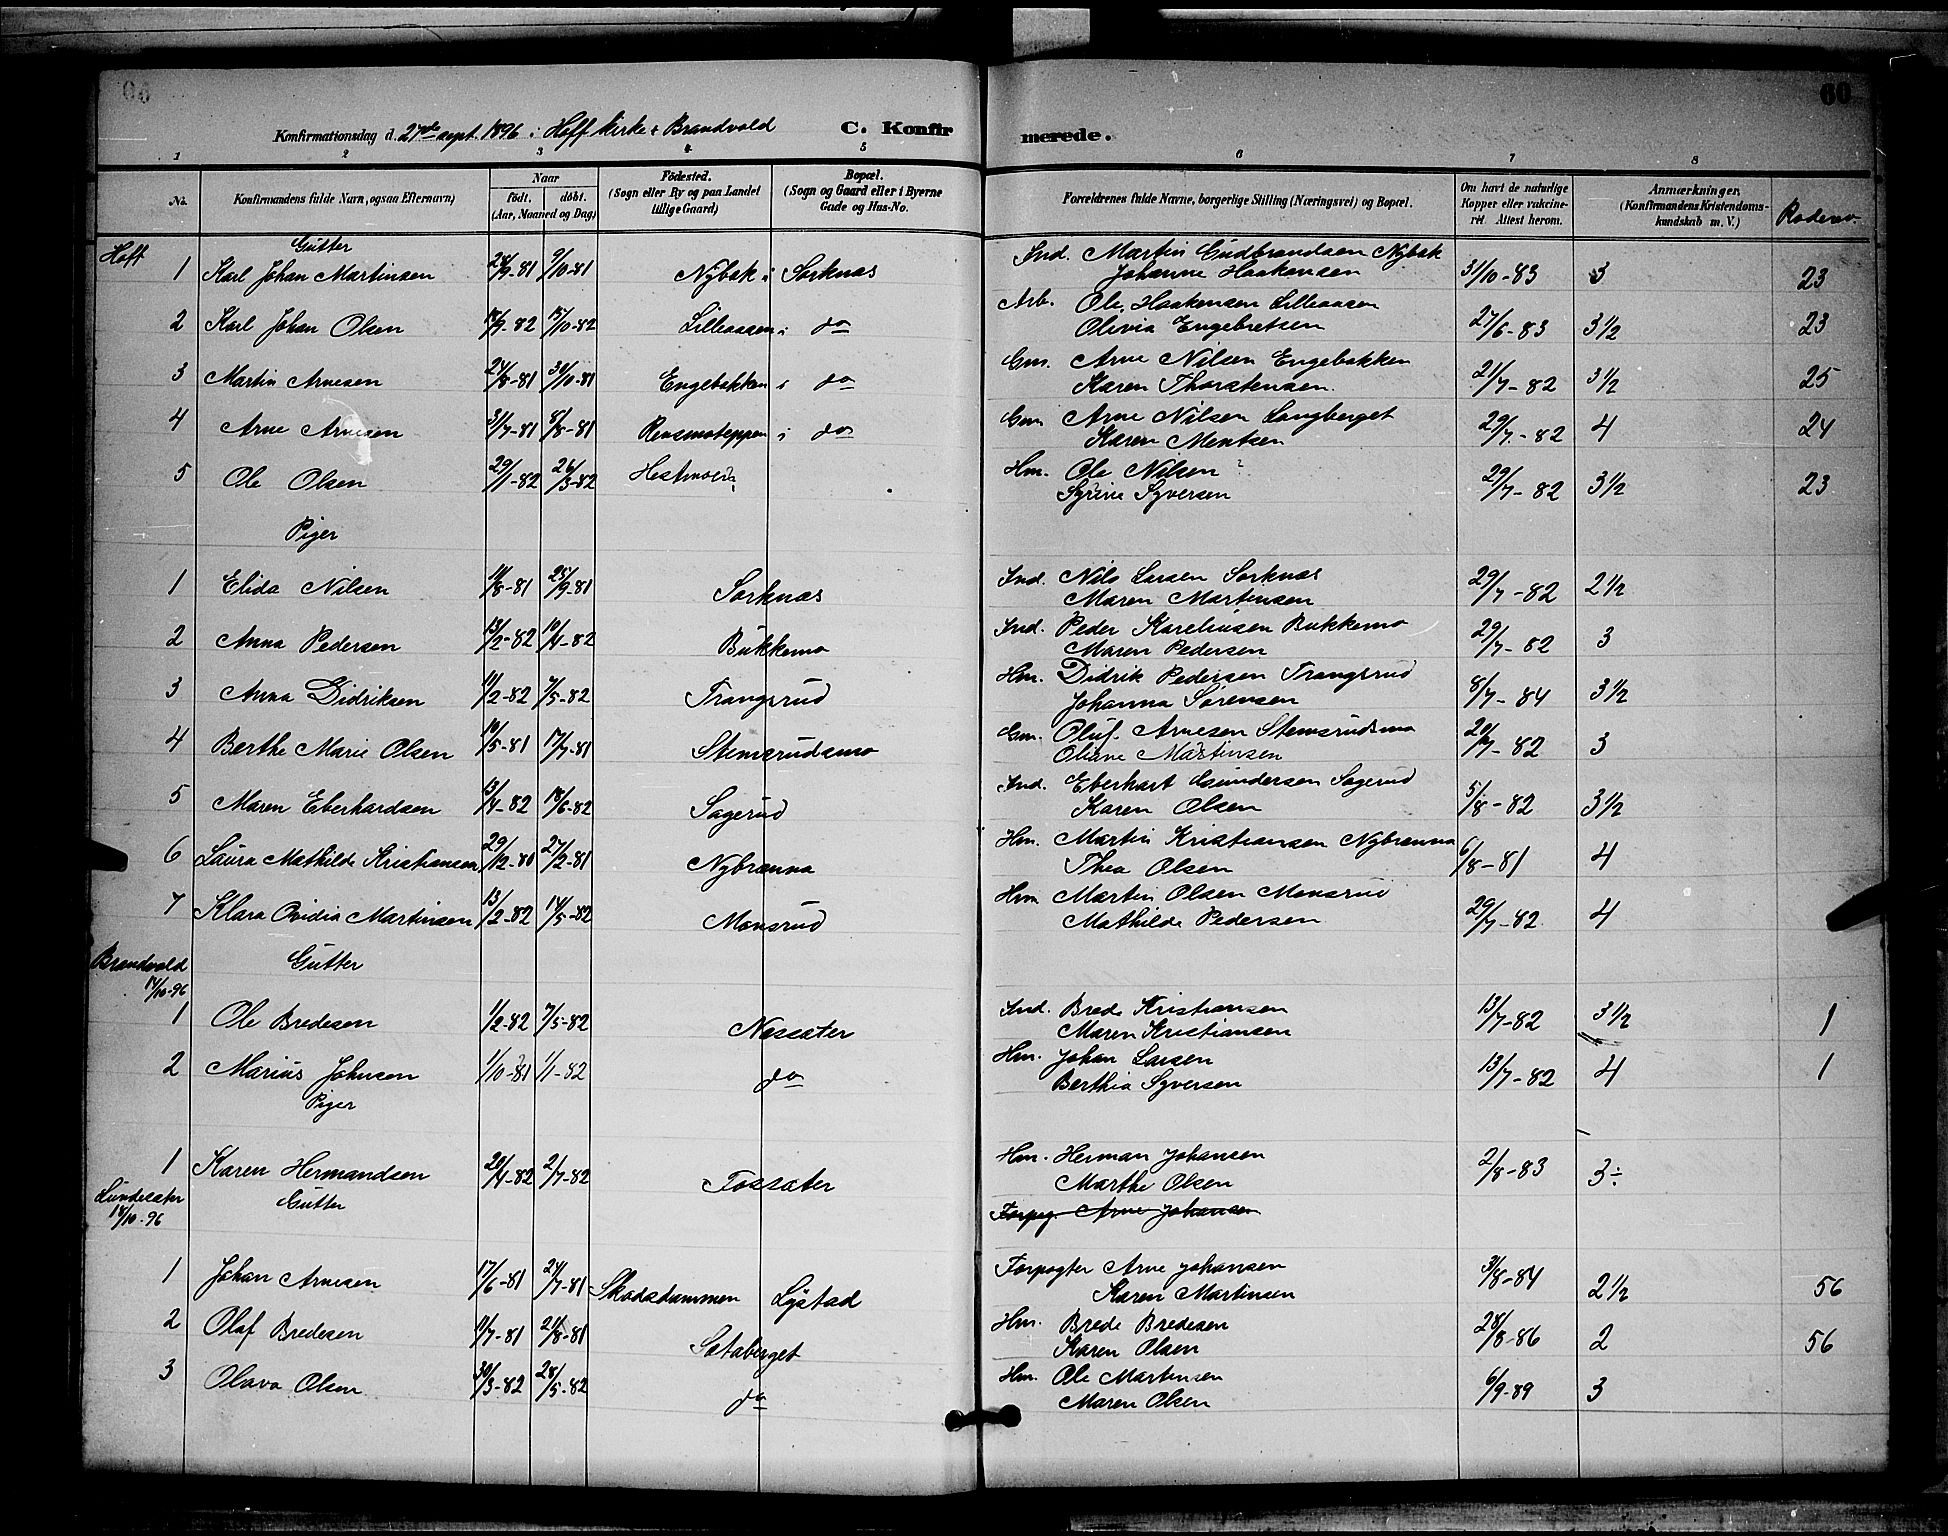 60
Konfirmationsdag d. 27de sept. 1896 i Hoff kirke & Brandvold C. Konfirmerede.
1 2 3 4 5 6 7 8
No. Konfirmandens fulde Navn, ogsaa Efternavn) Naar født. døbt. (Aar, Maaned og Dag) Födested. (Sogn eller By og paa Landet tillige Gaard) Bopæl. (Sogn og Gaard eller i Byerne Gade og Hus-No. Forældrenes fulde Navne, borgerlige Stilling (Næringsvei) og Bopæl. Om havt de naturlige Kopper eller vaccineret Attest herom. Anmærkninger, (Konfirmandens Kristendomskundskab m. V.) Rodeno.
Hoff Gutter
1 Karl Johan Martinsen 28/9-81 9/10-81 Nybak i Sorknæs Ind. Martin Gudbrandsen Nybak
Johanne Haakensen 31/10-83 3 23
2 Karl Johan Olsen /9-82 15/10-82 Lilleaasen i do Arb. Ole Haakensen Lilleaasen
Olivia Engebretsen 27/6-83 3 1/2 23
3 Martin Arnesen 24/8-81 30/10-81 Engebakken i do Gm. Arne Nilsen Engebakken
Karen Thorstensen. 21/7-82 3 1/2 25
4 Arne Arnesen 31/7-81 8/8-81 Rensmoteppen i do Gm Arne Nilsen Langberget
Karen Mentsen 29/7-82 4 24
5 Ole Olsen 29/1-82 26/3-82 Hm. Ole Nilsen
Syrine Syversen 29/7-82 3 1/2 23
Piger
1 Elida Nilsen 11/8-81 25/9-81 Sorknæs Ind. Nils Larsen Sorknæs
Maren Martinsen 29/7-82 2 1/2
2 Anna Pedersen 13/2-82 10/4-82 Bukkemo Ind. Peder Karelinsen Bukkemo
Maren Pedersen 29/7-82 3
3 Anna Didriksen 11/2-82 7/5-82 Trangsrud Hm. Didrik Pedersen Trangsrud
Johanna Sørensen 8/7-84 3 1/2
4 Berthe Marie Olsen 10/5-81 17/7-81 Stemsrudsmo Gm. Oluf Arnesen Stemsrudsmo
Oliane Martinsen 20/7-82 3
5 Maren Eberhardsen 13/4-82 18/6-82 Sagerud Ind. Eberhart Gundersen Sagerud
Karen Olsen 5/8-82 3 1/2
6 Laura Mathilde Kristiansen 29/12-80 27/2-81 Nybrænna Hm. Martin Kristiansen Nybrænna
Thea Olsen 6/8-81 4
7 Klara Ovidia Martinsen 13/2-82 14/5-82 Monsrud Hm Martin Olsen Monsrud
Mathilde Pedersen 29/7-82. 4
Brandvold Gutter
/10-96
1 Ole Bredesen 1/2-82 7/5-82 Næssæter Ind. Brede Kristiansen
Maren Kristiansen 13/7-82 3 1/2 1
2 Marius Johnsen 1/10-81 1/1-82 do Hm. Johan Larsen
Berthia Syversen 13/7-82 4 1
Piger
1 Karen Hermandsen 20/4-82 2/7-82 Fossæter Hm. Herman Johansen
Marthe Olsen 2/8-83 3÷
Lundersæter 18/10-96 Gutter Forpag. Arne Johansen
1 Johan Arnesen 17/6-81 24/7-81 Skadsdammen Lystad Forpagter Arne Johansen
Karen Martinsen 3/8-84 2 1/2 56
2 Olaf Bredesen 11/7-81 21/8-81 Sætaberget Hm. Brede Bredesen
Karen Olsen 28/8-86 2 56
3 Olava Olsen 30/3-82 28/5-82 do Hm. Ole Martinsen
Maren Olsen 6/9-89 3